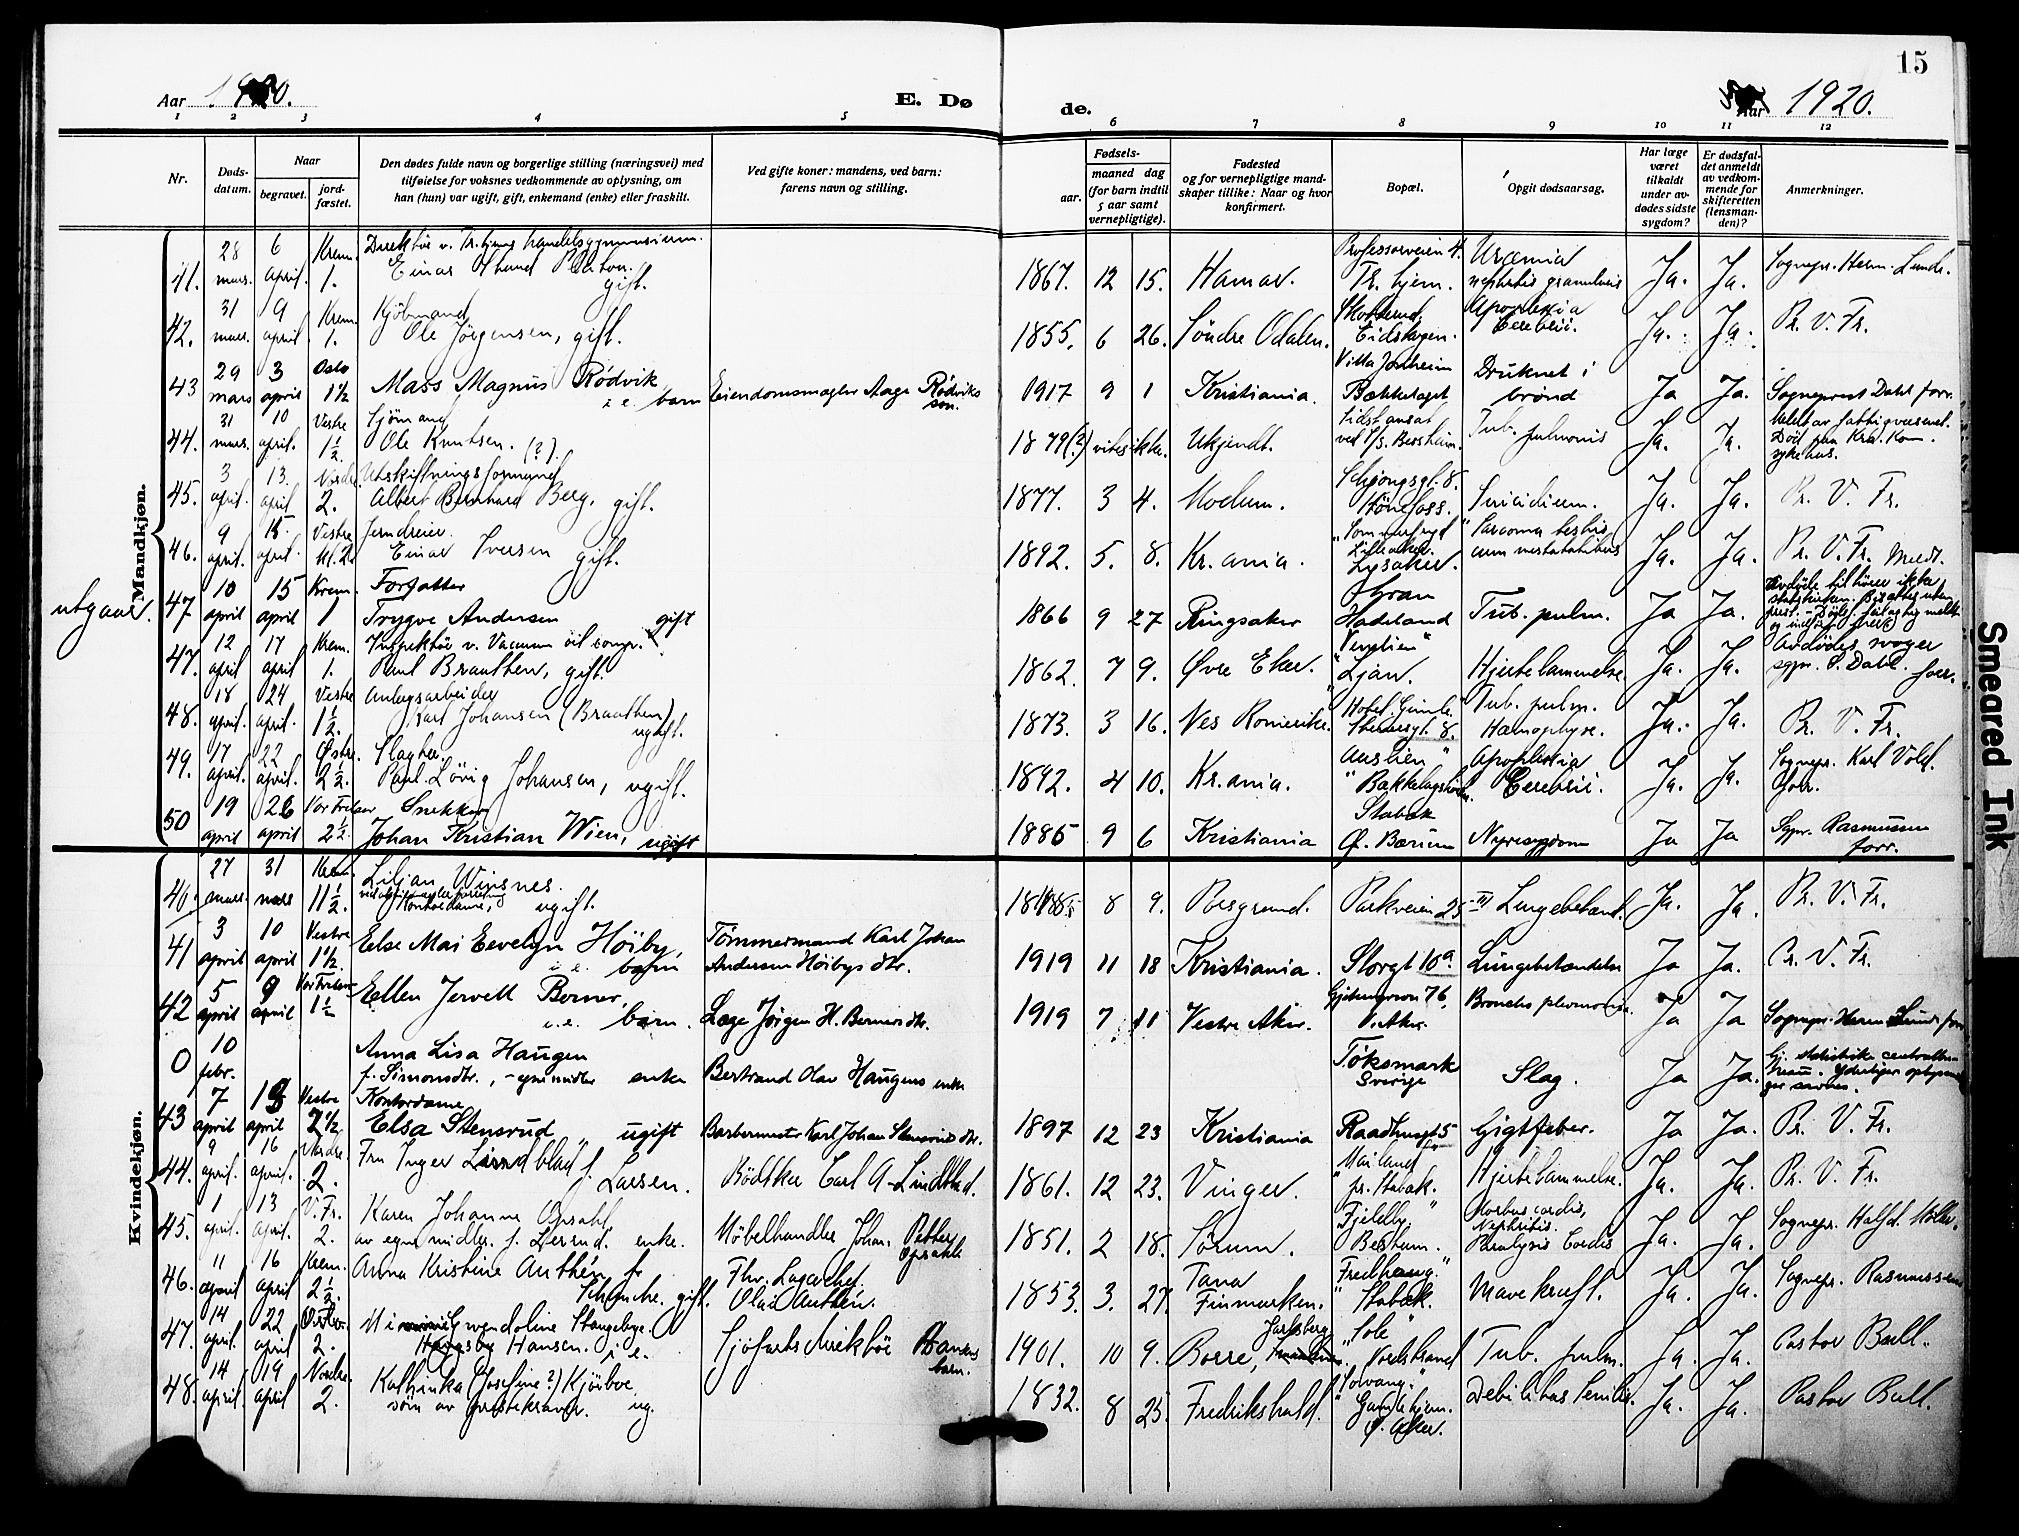 15
Aar 1920.
E. Dø
de.
Aar 1920.
1 2 3 4 5 6 7 8 9 10 11 12
Nr.
Døds-
datum.
Naar
begravet.
jord-
fæstet.
Den dødes fulde navn og borgerlige stilling (næringsvei) med
tilføielse for voksnes vedkommende av oplysning, om
han (hun) var ugift, gift, enkemand (enke) eller fraskilt.
Ved gifte koner: mandens, ved barn:
farens navn og stilling.
Fødsels-
aar.
maaned dag
(for barn indtil
5 aar samt
vernepligtige).
Fødested
og for vernepligtige mand-
skaper tillike: Naar og hvor
konfirmert.
Bopæl.
Opgit dødsaarsag.
Har læge
været
tilkaldt
under av-
dødes sidste
sygdom?
Er dødsfal-
det anmeldt
av vedkom-
mende for
skifteretten
(lensman-
den)?
Anmerkninger.
Mandkjøn.
41. 28 mars. 6 april. Krem. 1. Direktør v. Tr.hjems handelsgymnasium. Einar gift. 1867. 12 15. Hamar. Professorveien 4. Tr. hjem. Uræmia nephritis granularis Ja. Ja. Sognepr. Herm. Lunde.
42. 31 mars. 9 april Krem. 1. Kjøbmand Ole Jørgensen, gift. 1855. 6 26. Søndre Odalen. Skotterud, Eidskogen. Apoplexia Cerebri. Ja. Ja. Pr. V. Fr.
43 29 mars 3 april Oslo 1½ Mass Magnus Rødvik i.e. barn Eiendomsmægler Aage Rødviks søn. 1917 9 1 Kristiania. Villa Jonheim Bækkelaget Druknet i brønd Ja Ja. Sogneprest Dahl forr.
44. 31 mars. 10 april. Vestre 1½ Sjømand Ole Knutsen. (?). 1879(?) vites ikke. Ukjendt. sidst ansat ved S/S. Tub. pulmonis Ja. Ja. Meldt av fattigvæsenet. Død paa Kra. Kom. sykehus.
45. 3 april. 13. april Nordre 2. Utskiftningsformand Albert Bernhard Berg, gift. 1877. 3 4. Modum. Hønefoss. Suicidium. Ja. Ja. Pr. V. Fr.
46. 9 april. 15. april. Vestre kl. 2. Einar Iversen gift. 1892. 5. 8. Kr.ania. "Sommerfryd" Lilleaker. Lysaker. Sarcoma testis cum metastatibus Ja. Ja. Pr. V. Fr. Medt.
utgaar.
47 10 april 15 april Krem. 1 Forfatter Trygve Andersen gift 1866 9 27 Ringsaker Gran Hadeland Tub. pulm. Ja Ja. Avdøde tilhører ikke statskirken.
47. 12 april 17 april Krem. 1. Inspektør v. Vacuum oil comp. Paul Braathen, gift. 1862. 7 9. Øvre Eker. Ljan. Hjertelammelse. Ja. Ja. Avdødes svoger sgpr. S. Dahl. forr.
48. 18 april. 24 april. Vestre 1½. Anlægsarbeider Karl Johansen (Braathen) ugift. 1873. 3 16. Nes Romerike. Hotel Gimle. 8. Tub. pulm. Hæmophyse. Ja. Ja. Pr. V. Fr.
49. 17 april. 22 april. Østre. 2½. Slagter. Paul Løvig Johansen, ugift. 1892. 4 10. Kr.ania. "Auslien" Apoplexia Cerebri. Ja. Ja. Sognepr. Karl Vold. forr.
50 19 april 26 april Vor Frelser 2½. Snekker Johan Kristian Wien, ugift 1885 9 6 Kristiania Stabæk Ø. Bærum Nyresygdom Ja Ja Sgpr. Rasmussen forr.
Kvindekjøn.
40. 27 mars. 31 mars Krem. 11½. Liljan Winsnes. Kontordame, ugift. 8 9. Porsgrund. Parkveien 25 III Lungebetænd. Ja. Ja. Pr. V. Fr.
41 3 april 10 april Vestre 1½. Else Mai Eevelyn Høiby, i.e. barn Tømmermand Karl Johan Andersen Høibys dtr. 1919 11 18 Kristiania. Storgt 10a. Lungebetændelse Ja Ja Pr. V. Fr.
42 5 april 9 april Vor Frelser 1½ Eellen Jervell Berner, u.e. barn. Læge Jørgen H. Berners dtr. 1919 7 11 Vestre Aker. 76, V. Aker. Ja Ja Sognepr. Herm Lunde forr
0 10 febr. Anna Lisa Haugen f. Simonsdtr., - egne midler enke Bertrand Olav Haugens enke Töksmark Sverige Slag. Ja Ja.
43 7 april 13 april Vestre 2½. Kontordame Elsa Stensrud ugift Barbermester Karl Johan Stensruds dtr. 1897 12 23 Kristiania Raadhusgt 5 Gigtfeber. Ja Ja. Pr. V. Fr.
44. 9 april. 16 april. Nordre. 2. Fru Inger Lindblad f. Larsen. Bødtker Carl A. Lindblad. 1861. 12 23. Vinger. pr. Stabæk. Hjertelammelse. Ja. Ja. Pr. V. Fr.
45. 1 april. 13 april. V. Fr. 2. Karen Johanne Opsahl, av egne midler. f. enke. Møbelhandler Johan. Petter Opsahl 1851. 2 18. Sørum. Bestum. Morbus cordis, Nephritis. Paralysis Cordis Ja. Ja. Sognepr. Halfd. Møller.
46. 11 april 16 april Krem. 2½. Anna Kristine Anthén, f. gift. Fhv. Lagerchef. Olai Anthén. 1853. 3. 27. Tana Finmarken. "Fredhaug." Stabæk. Mavekræft. Ja. Ja. Sognepr. Rasmussen
47. 14 april. 22 april 2. Gwendoline Stangebye Hansen. i.e. Hansens barn. 1901. 10 9. Borre, Jarlsberg "Sole" Nordstrand Tub. pulm. Ja. Ja. Pastor Bull.
48. 14 april. 19 april Nordre. 2. Kathinka (Josefine?) Kjørboe ug. 1832. 8 25. Fredrikshald. "Solvang." Gamlehjem. Ø. Aker. Debilitas senilis. Ja. Ja. Pastor Bull.
Smeared Ink